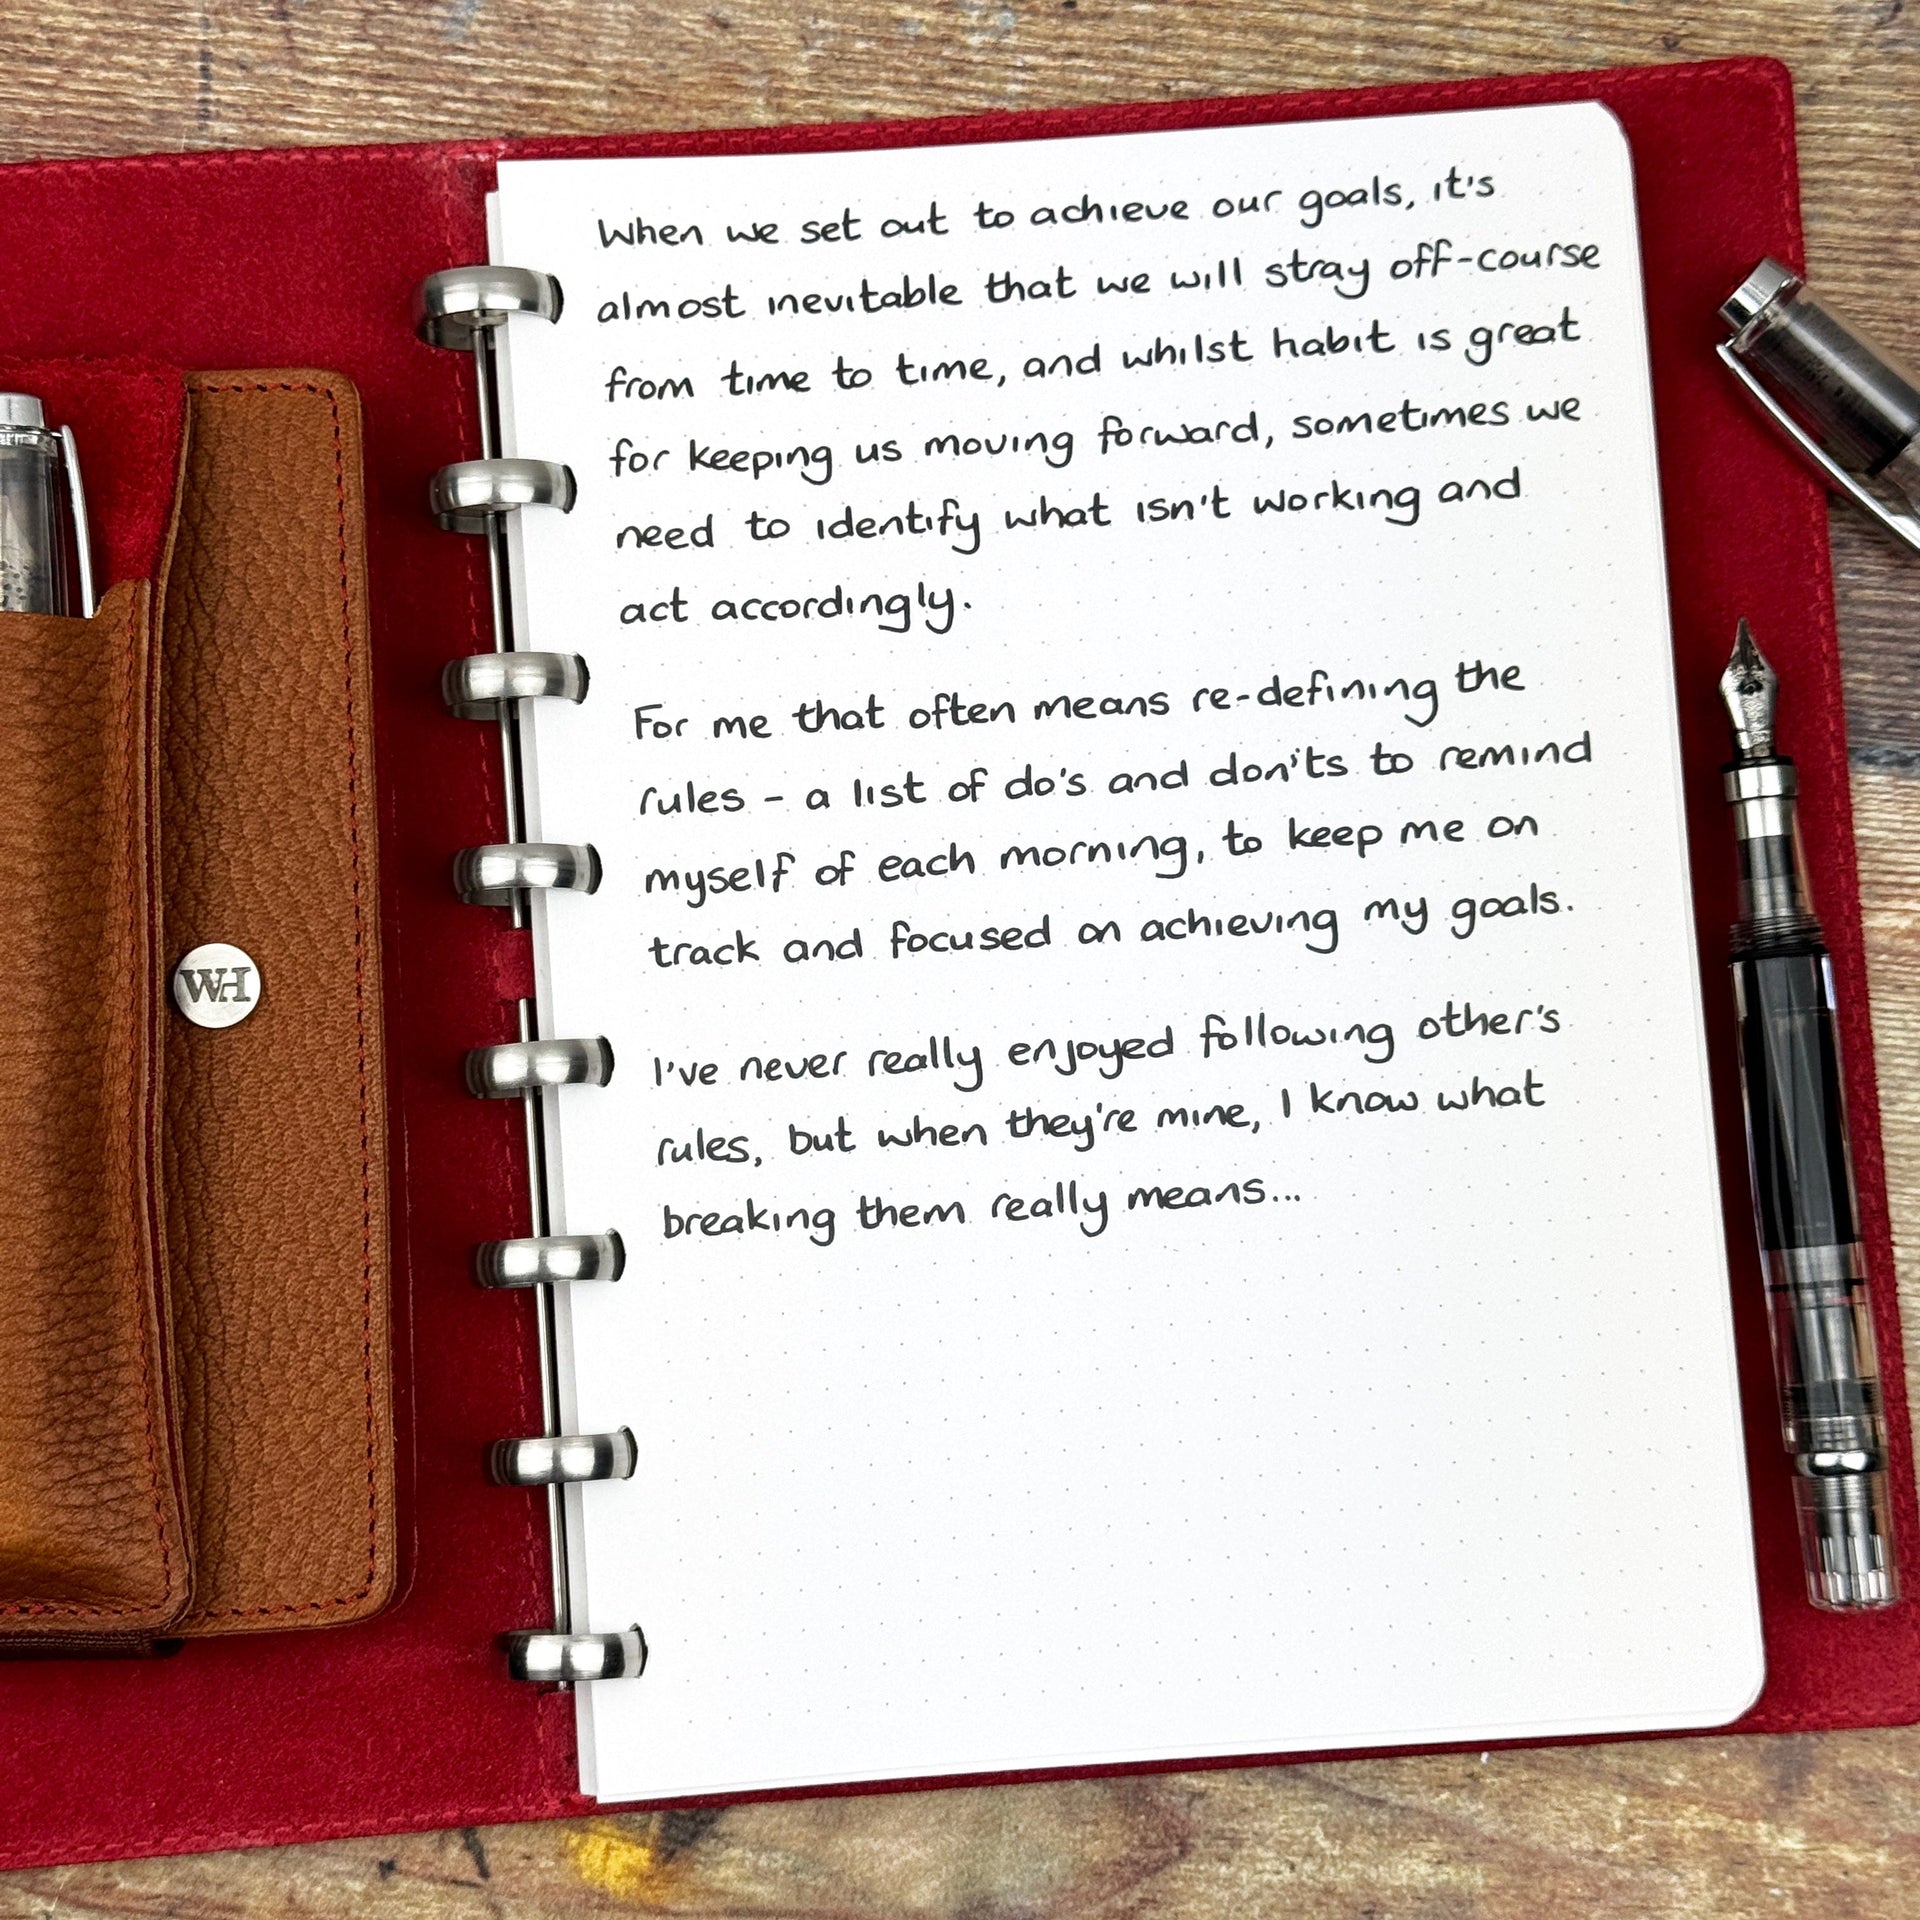 When we set out to achieve our goals, it's
almost inevitable that we will stray off-course
from time to time, and whilst habit is great
for keeping us moving forward, sometimes we
need to identify what isn't working and
act accordingly.
For me that often means re-defining the
rules - a list of do's and don'ts to remind
myself of each morning, to keep me on
track and focused on achieving my goals.
I've never really enjoyed following other's
rules, but when they're mine, I know what
breaking them really means...
WH